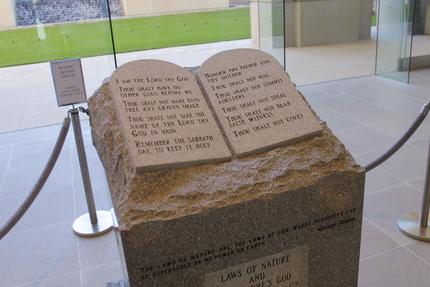 I AM THE LORD THY GOD
THOU SHALT HAVE NO
OTHER GODS BEFORE ME
THOU SHALT NOT MAKE UNTO
THEE ANY GRAVEN IMAGE
THOU SHALT NOT TAKE THE
NAME OF THE LORD THY
GOD IN VAIN
REMEMBER THE SABBATH
DAY, TO KEEP IT HOLY
HONOUR THY FATHER AND
THY MOTHER
THOU SHALT NOT KILL
THOU SHALT NOT COMMIT
ADULTERY
THOU SHALT NOT STEAL
THOU SHALT NOT BEAR
FALSE WITNESS
THOU SHALT NOT COVET
THE LAWS OF NATURE ARE THE LAWS OF GOD, WHOSE AUTHORITY CAN
BE SUPERSEDED BY NO POWER ON EARTH
George Mason
LAWS OF NATURE
AND
GOD